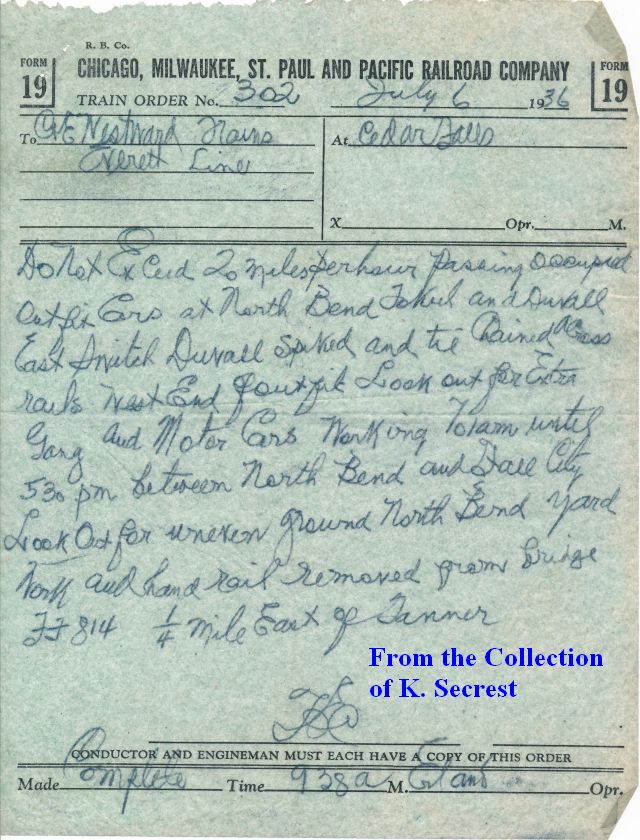 R. B. Co.
FORM 19 CHICAGO, MILWAUKEE, ST. PAUL AND PACIFIC RAILROAD COMPANY FORM 19
TRAIN ORDER No. 302 July 6 1936
To Westward Trains At Cedar Falls
Everett Line
X Opr. M.
Do Not Exceed 20 Miles per hour passing occupied
outfit Cars at North Bend Tokul and Duvall
East Switch Duvall Spiked and tie Chained across
rails West End of outfit Look out for Extra
Gang and Motor Cars Working 7 am until
530 pm between North Bend and Fall City
Look Out for uneven ground North Bend Yard
Work and hand rail removed from bridge
FF 814 1/4 Mile East of Tanner
From the Collection
of K. Secrest
CONDUCTOR AND ENGINEMAN MUST EACH HAVE A COPY OF THIS ORDER
Made Complete Time 938 a M. Opr.